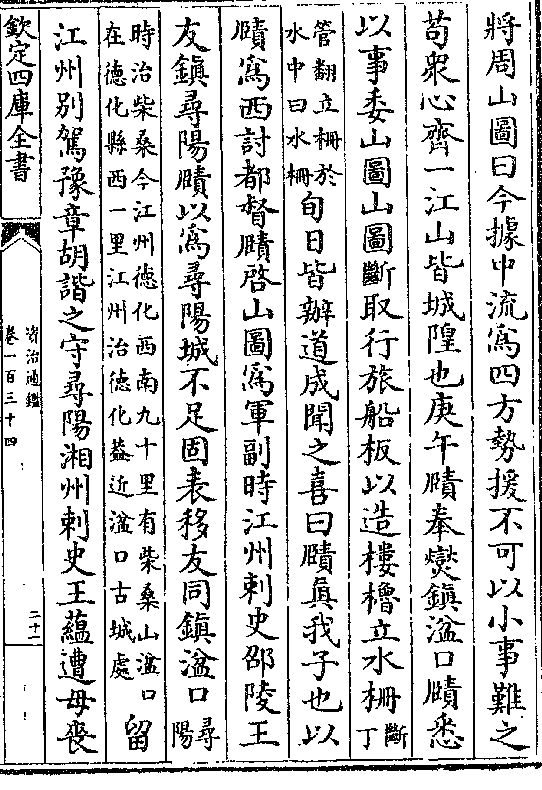 將周山圖曰今據中流爲四方勢援不可以小事難之
苟衆心齊一江山皆城隍也庚午賾奉燮鎮湓口賾悉
以事委山圖山圖斷取行旅船板以造樓櫓立水柵斷丁
管翻立柵於水中曰水柵旬日皆辦道成聞之喜曰賾眞我子也以
賾爲西討都督賾啓山圖爲軍副時江州刺史邵陵王
友鎮尋陽賾以爲尋陽城不足固表移友同鎮湓口尋陽
時治柴桑今江州德化西南九十里有柴桑山湓口在德化縣西一里江州治德化蓋近湓口古城處留
江州別駕豫章胡諧之守尋陽湘州刺史王蘊遭母喪
欽定四庫全書
資治通鑑
卷一百三十四
二十